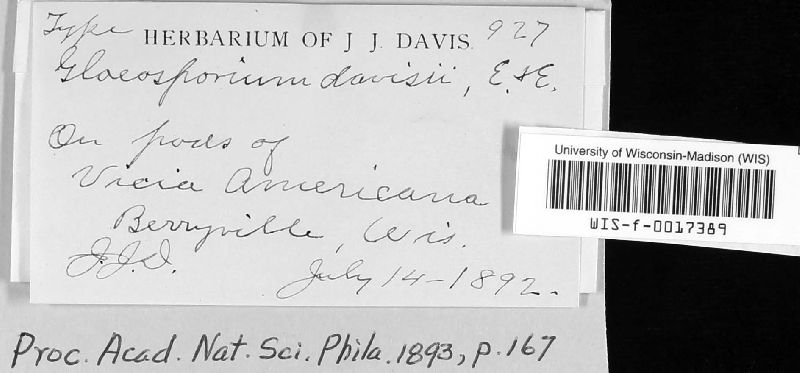 Type HERBARIUM OF J J. DAVIS. 927
Gloeosporium davisii, E. & E.
On pods of
Vicia Americana
Berryville, Wis.
J.J.D. July 14-1892.
University of Wisconsin-Madison (WIS)
WIS-f-0017389
Proc. Acad. Nat. Sci. Phila. 1893, p. 167